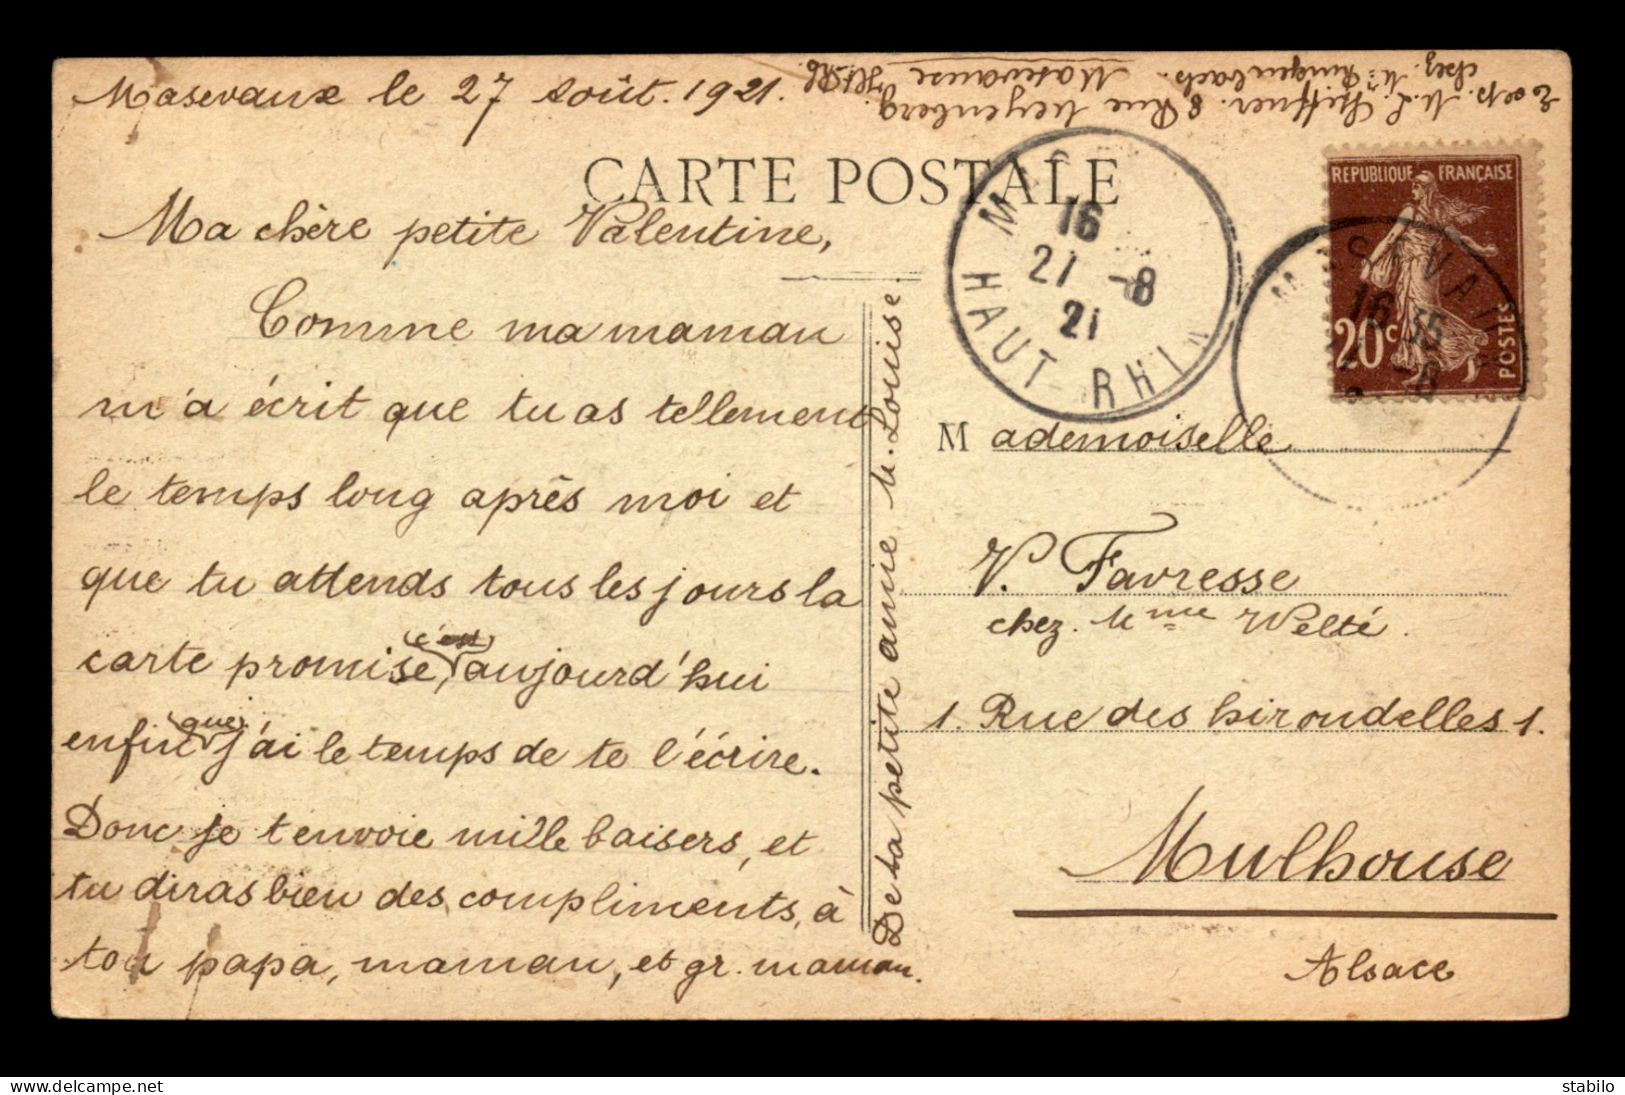 Masevaux le 27 août. 1921.
Exp. M. L. Scheffner. 8 Rue Weyenberg.
chez. Mr Ringenbach. Masevaux Ht-Rh.
CARTE POSTALE
Ma chère petite Valentine,
Comme ma maman
m'a écrit que tu as tellement
le temps long après moi et
que tu attends tous les jours la
carte promise, (c'est) aujourd'hui
enfin (que) j'ai le temps de te l'écrire.
Donc je t'envoie mille baisers, et
tu diras bien des compliments, à
ton papa, maman, et gr. maman.
De ta petite amie M. Louise.
16
21 -8
21
HAUT-RHIN
REPUBLIQUE FRANÇAISE
20c
POSTES
MASEVAUX
16 35
-8
Mademoiselle
V. Favresse
chez. Mme Welté.
1. Rue des hirondelles 1.
Mulhouse
Alsace
stabilo